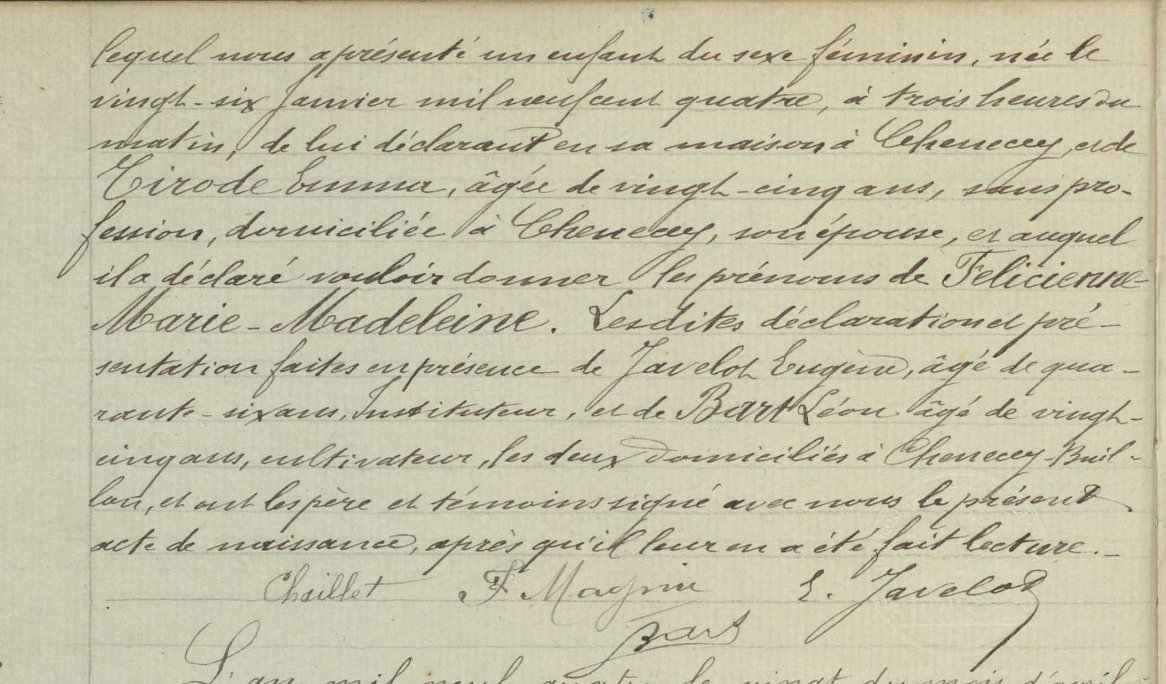 lequel nous a présenté un enfant du sexe féminin, née le
vingt-six Janvier mil neuf cent quatre, à trois heures du
matin, de lui déclarant en sa maison à Chenecey, et de
Tirode Emma, âgée de vingt-cinq ans, sans pro-
fession, domiciliée à Chenecey, son épouse, et auquel
il a déclaré vouloir donner les prénoms de Felicienne-
Marie-Madeleine. Lesdites déclaration et pré-
sentation faites en présence de Javelot Eugène, âgé de qua-
rante-six ans, instituteur, et de Bart Léon âgé de vingt-
cinq ans, cultivateur, les deux domiciliés à Chenecey-Buil-
lon, et ont les père et témoins signé avec nous le présent
acte de naissance, après qu'il leur en a été fait lecture.-
Chaillet F Magnin E. Javelot
Bart
L'an mil neuf quatre le vingt du mois d'avril